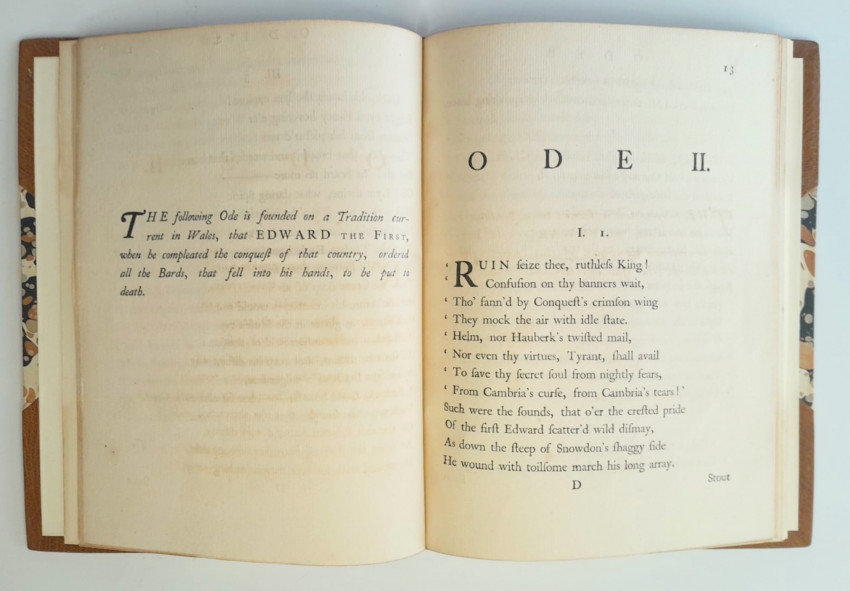 THE following Ode is founded on a Tradition cur-
rent in Wales, that EDWARD THE FIRST,
when he compleated the conqueſt of that country, ordered
all the Bards, that fell into his hands, to be put to
death.
13
ODE II.
I. 1.
‘ RUIN ſeize thee, ruthleſs King!
‘ Confuſion on thy banners wait,
‘ Tho' fann'd by Conqueſt's crimſon wing
‘ They mock the air with idle ſtate.
‘ Helm, nor Hauberk's twiſted mail,
‘ Nor even thy virtues, Tyrant, ſhall avail
‘ To ſave thy ſecret ſoul from nightly fears,
‘ From Cambria's curſe, from Cambria's tears!’
Such were the ſounds, that o'er the creſted pride
Of the firſt Edward ſcatter'd wild diſmay,
As down the ſteep of Snowdon's ſhaggy ſide
He wound with toilſome march his long array.
D
Stout